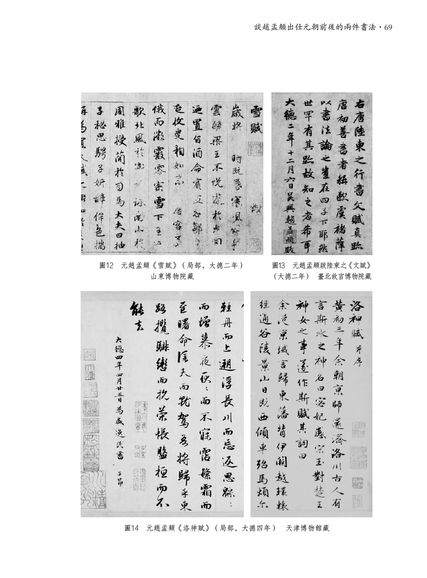 談趙孟頫出任元朝前後的兩件書法・69
雪賦
歲將暮時既昏寒風
雲繁梁王不悅遊於兔園
迺置旨酒命賓友召鄒
延枚叟相如
俄而微霰零密雪下王
歌北風於衛詩詠南山於
周雅授簡於司馬大夫曰抽
子秘思騁子妍辭侔色揣
圖12　元趙孟頫《雪賦》（局部，大德二年）
山東博物院藏
右唐陸柬之行書文賦真跡
唐初善書者稱歐虞褚薛
以書法論之豈在四子下耶然
世罕有其跡故知之者希耳
大德二年十二月六日吳興趙孟頫跋
圖13　元趙孟頫跋陸柬之《文賦》
（大德二年）　臺北故宮博物院藏
洛神賦 并序
黃初三年余朝京師還濟洛川古人有
言斯水之神名曰宓妃感宋玉對楚王
神女之事遂作斯賦其詞曰
余從京域言歸東藩背伊闕越轘轅
經通谷陵景山日既西傾車殆馬煩尔
輕舟而上遡浮長川而忘返思緜〻
而增慕夜耿〻而不寐霑繁霜而
至曙命僕夫而就駕吾將歸乎東
路攬騑轡而抗策悵盤桓而不
能去
大德四年四月廿五日為盛逸民書　子昂
圖14　元趙孟頫《洛神賦》（局部，大德四年）　天津博物館藏